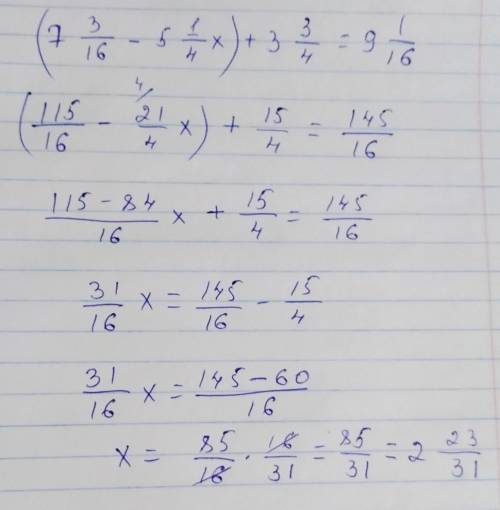 (7 3/16 - 5 1/4 x) + 3 3/4 = 9 1/16
(115/16 - 21/4 x) + 15/4 = 145/16
4/
(115 - 84)/16 x + 15/4 = 145/16
31/16 x = 145/16 - 15/4
31/16 x = (145 - 60)/16
x = 85/16 · 16/31 = 85/31 = 2 23/31